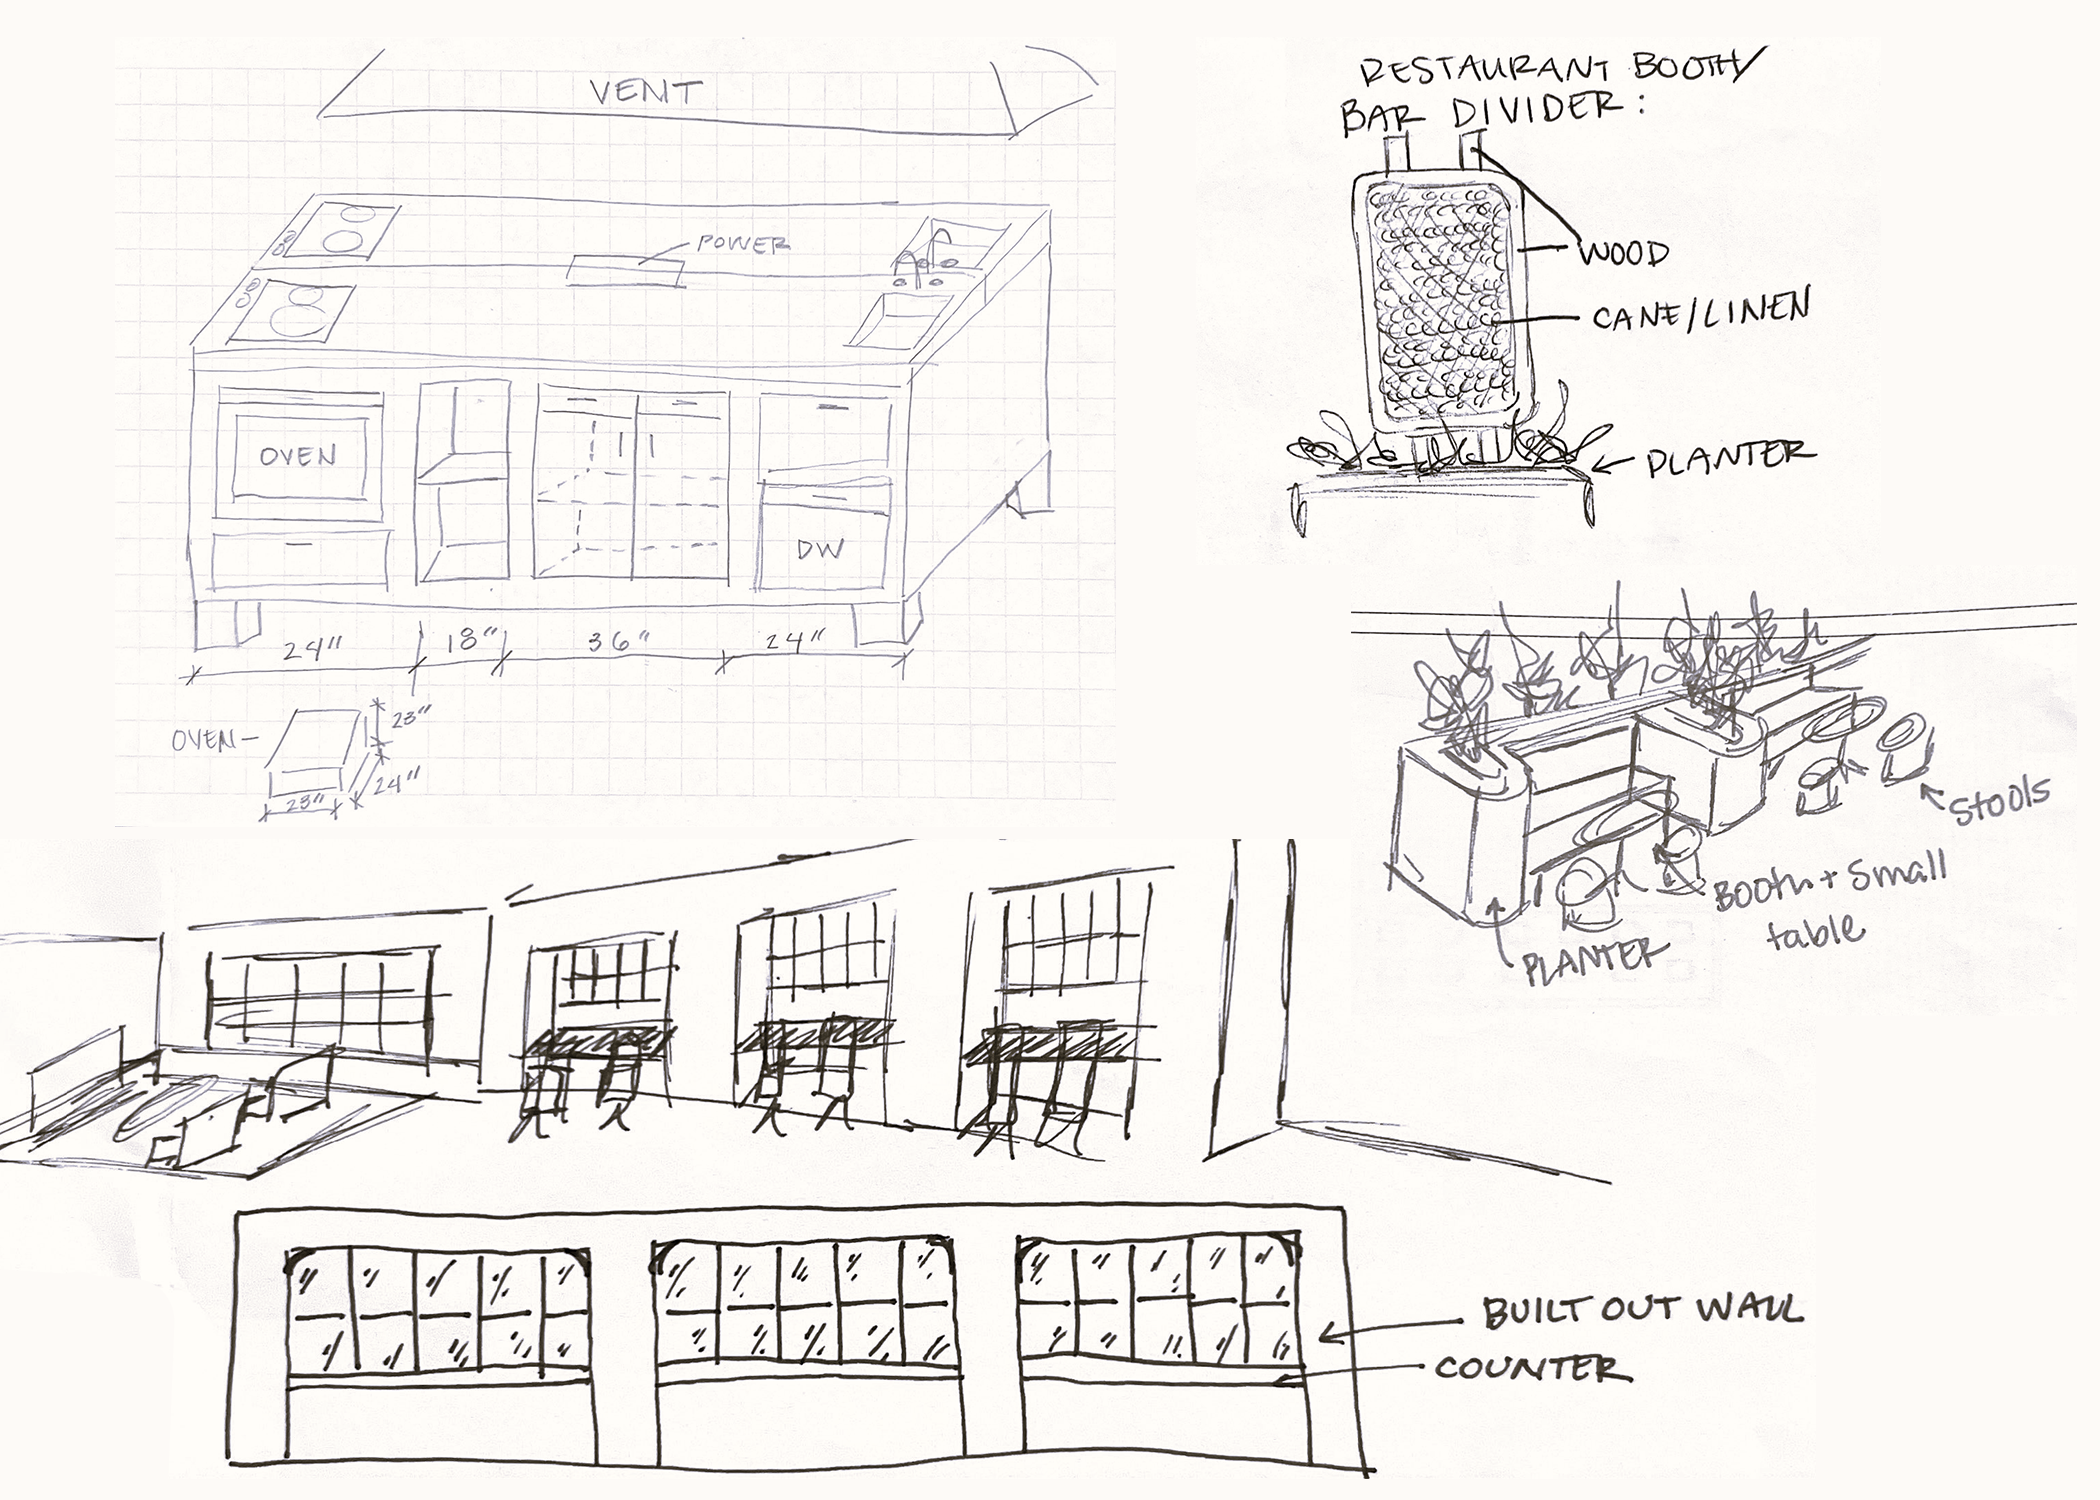 VENT
POWER
OVEN
DW
24"
18"
36"
24"
OVEN-
23"
24"
23"
RESTAURANT BOOTH/
BAR DIVIDER:
WOOD
CANE/LINEN
PLANTER
Stools
BOOTH + Small
table
PLANTER
BUILT OUT WALL
COUNTER